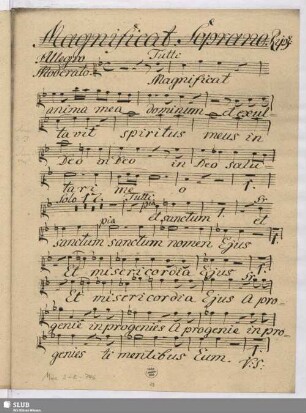 Magnificat. Soprano. Rip:
Allegro Tutti
Moderato. Magnificat
anima mea dominum et exul
tavit spiritus meus in
Deo in Deo in Deo salu
tari me o 1.
Solo 17. Tutti Fr
pia et sanctum et
sanctum sanctum nomen Ejus
Et misericordia Ejus
Et misericordia Ejus A pro
genie in progenies A progenie in pro
genies ti mentibus Eum. V.S.
SLUB